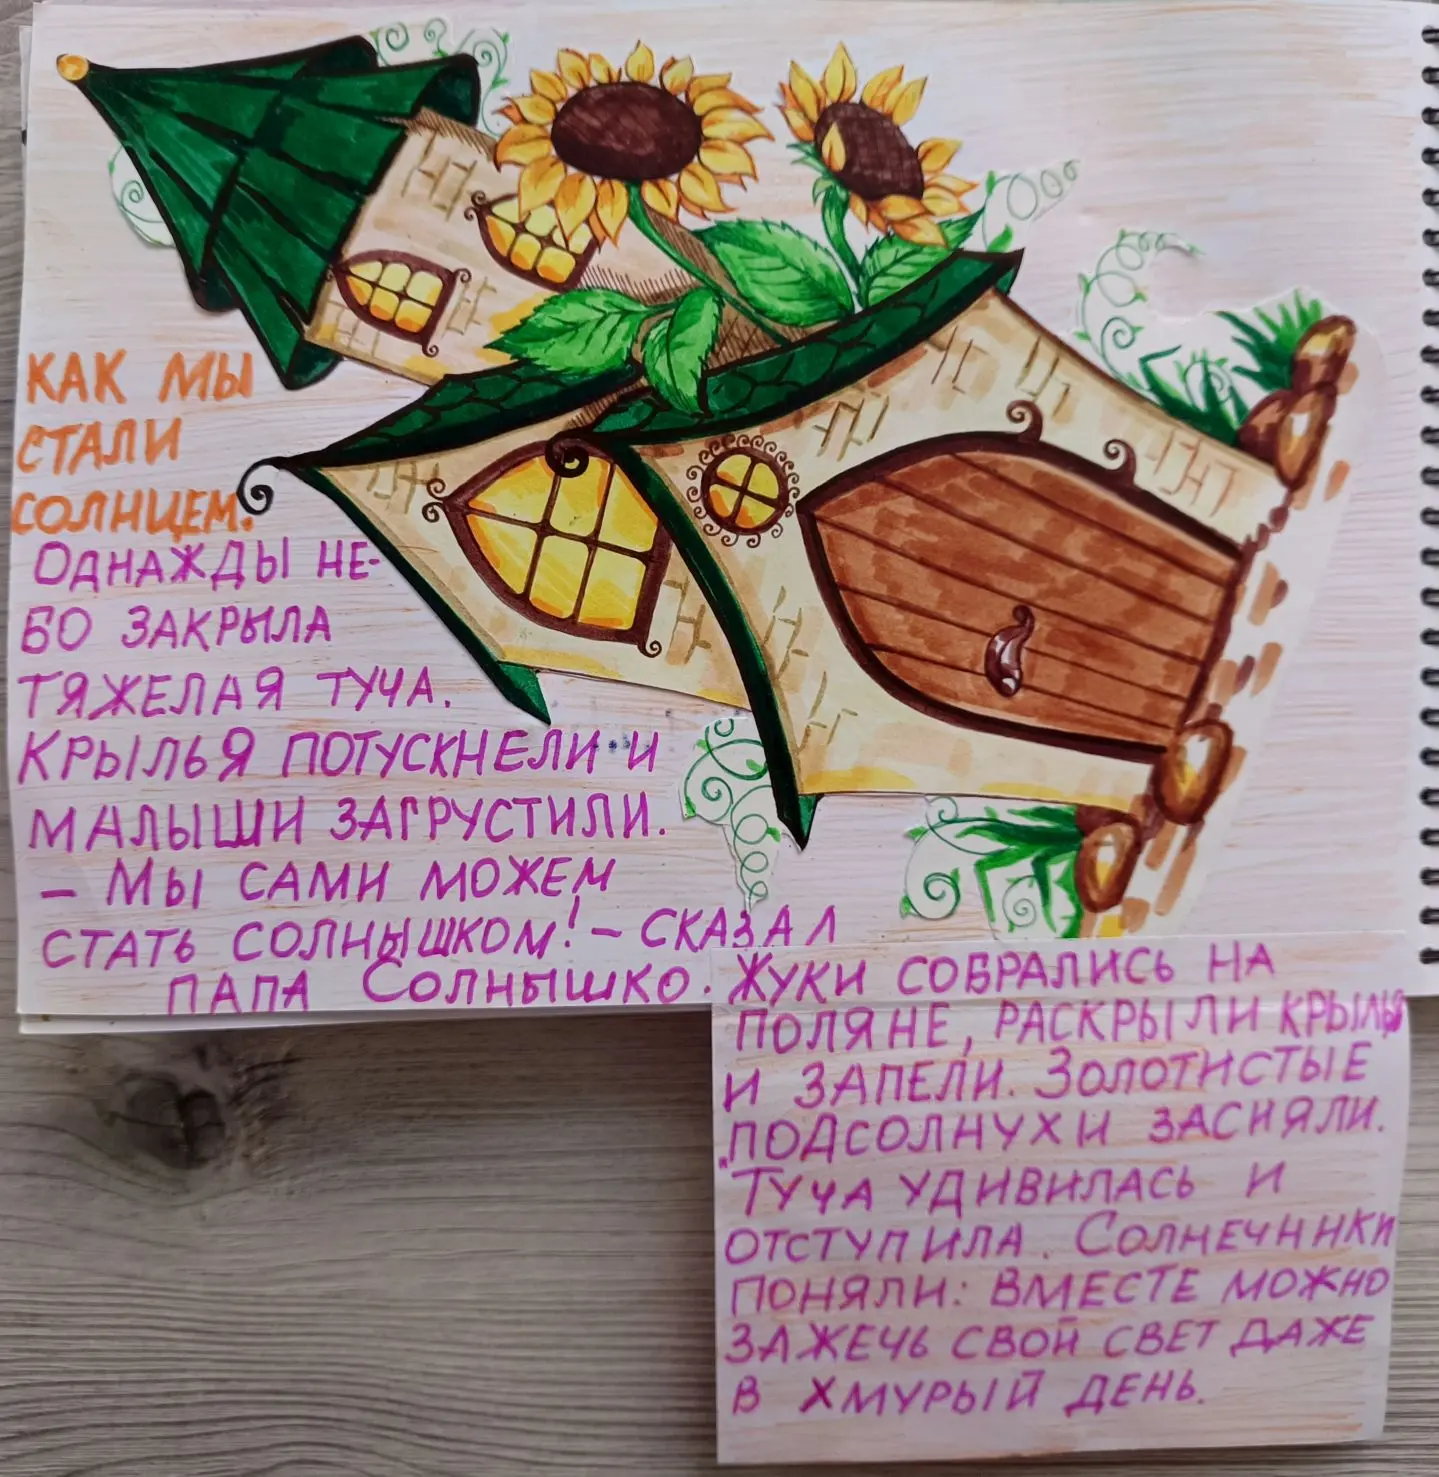 КАК МЫ
СТАЛИ
СОЛНЦЕМ.
ОДНАЖДЫ НЕ-
БО ЗАКРЫЛА
ТЯЖЕЛАЯ ТУЧА.
КРЫЛЬЯ ПОТУСКНЕЛИ И
МАЛЫШИ ЗАГРУСТИЛИ.
– МЫ САМИ МОЖЕМ
СТАТЬ СОЛНЫШКОМ! – СКАЗАЛ
ПАПА СОЛНЫШКО.
ЖУКИ СОБРАЛИСЬ НА
ПОЛЯНЕ, РАСКРЫЛИ КРЫЛЬЯ
И ЗАПЕЛИ. ЗОЛОТИСТЫЕ
ПОДСОЛНУХИ ЗАСИЯЛИ.
ТУЧА УДИВИЛАСЬ И
ОТСТУПИЛА. СОЛНЕЧНИКИ
ПОНЯЛИ: ВМЕСТЕ МОЖНО
ЗАЖЕЧЬ СВОЙ СВЕТ ДАЖЕ
В ХМУРЫЙ ДЕНЬ.